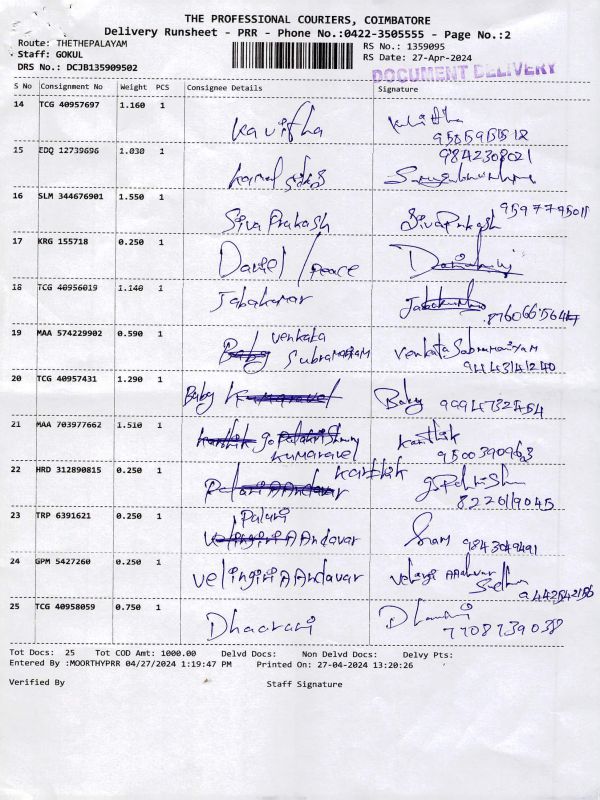 THE PROFESSIONAL COURIERS, COIMBATORE
Delivery Runsheet - PRR - Phone No.:0422-3505555 - Page No.:2
Route: THETHEPALAYAM
Staff: GOKUL
DRS No.: DCJB135909502
RS No.: 1359095
RS Date: 27-Apr-2024
DOCUMENT DELIVERY
S No Consignment No Weight PCS Consignee Details Signature
14 TCG 40957697 1.160 1 Kavitha
15 EDQ 12739696 1.030 1 9842308021
16 SLM 344676901 1.550 1 Siva Prakash SivaPrakash
17 KRG 155718 0.250 1 Daniel / Peace
18 TCG 40956019 1.140 1 Jabakumar
19 MAA 574229902 0.590 1 Baby Venkata
Subramaniam Venkata Subramaniyam
9443141240
20 TCG 40957431 1.290 1 Baby Kumaravel Baby 9994732454
21 MAA 703977662 1.510 1 Karthik Karthik
Kumaravel 9500390963
22 HRD 312890815 0.250 1 Karthik
Palani A Andavar 8220119045
23 TRP 6391621 0.250 1 Palani
Velingiri A Andavar 9843049491
24 GPM 5427260 0.250 1 Velingiri A Andavar
25 TCG 40958059 0.750 1 Dhaarani
7708739038
Tot Docs: 25 Tot COD Amt: 1000.00 Delvd Docs: Non Delvd Docs: Delvy Pts:
Entered By :MOORTHYPRR 04/27/2024 1:19:47 PM Printed On: 27-04-2024 13:20:26
Verified By Staff Signature